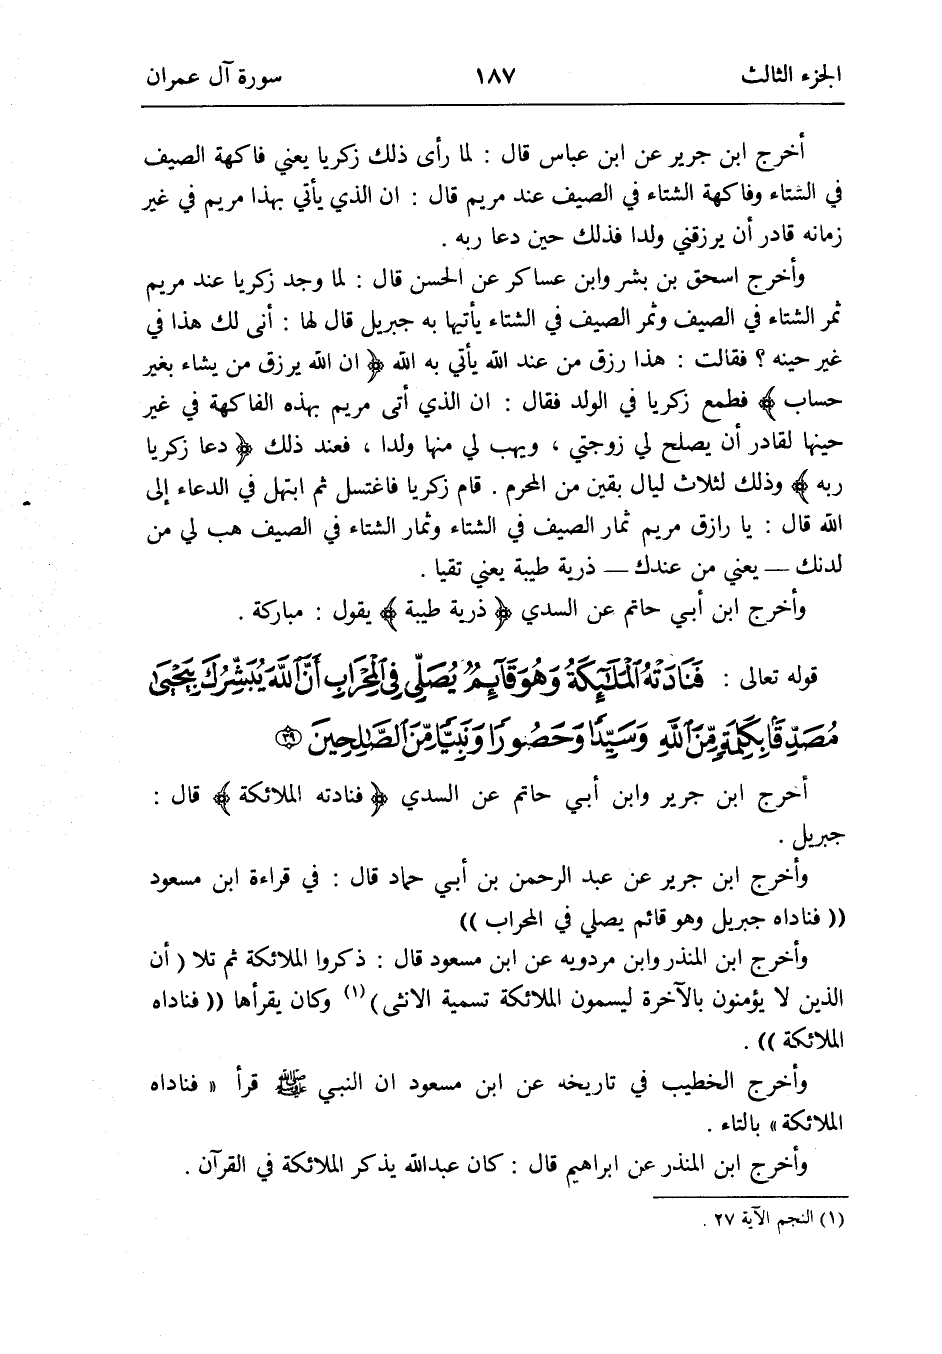 الجزء الثالث ١٨٧ سورة آل عمران
أخرج ابن جرير عن ابن عباس قال : لما رأى ذلك زكريا يعني فاكهة الصيف
في الشتاء وفاكهة الشتاء في الصيف عند مريم قال : ان الذي يأتي بهذا مريم في غير
زمانه قادر أن يرزقني ولدا فذلك حين دعا ربه .
وأخرج اسحق بن بشر وابن عساكر عن الحسن قال : لما وجد زكريا عند مريم
ثمر الشتاء في الصيف وثمر الصيف في الشتاء يأتيها به جبريل قال لها : أنى لك هذا في
غير حينه ؟ فقالت : هذا رزق من عند الله يأتي به الله ﴿ ان الله يرزق من يشاء بغير
حساب ﴾ فطمع زكريا في الولد فقال : ان الذي أتى مريم بهذه الفاكهة في غير
حينها لقادر أن يصلح لي زوجتي ، ويهب لي منها ولدا ، فعند ذلك ﴿ دعا زكريا
ربه ﴾ وذلك لثلاث ليال بقين من المحرم . قام زكريا فاغتسل ثم ابتهل في الدعاء إلى
الله قال : يا رازق مريم ثمار الصيف في الشتاء وثمار الشتاء في الصيف هب لي من
لدنك — يعني من عندك — ذرية طيبة يعني تقيا .
وأخرج ابن أبي حاتم عن السدي ﴿ ذرية طيبة ﴾ يقول : مباركة .
قوله تعالى : فَنَادَتْهُ الْمَلَٰٓئِكَةُ وَهُوَ قَآئِمٌ يُصَلِّي فِي الْمِحْرَابِ أَنَّ اللَّهَ يُبَشِّرُكَ بِيَحْيَىٰ
مُصَدِّقًا بِكَلِمَةٍ مِّنَ اللَّهِ وَسَيِّدًا وَحَصُورًا وَنَبِيًّا مِّنَ الصَّٰلِحِينَ ٣٩
أخرج ابن جرير وابن أبي حاتم عن السدي ﴿ فنادته الملائكة ﴾ قال :
جبريل .
وأخرج ابن جرير عن عبد الرحمن بن أبي حماد قال : في قراءة ابن مسعود
(( فناداه جبريل وهو قائم يصلي في المحراب ))
وأخرج ابن المنذر وابن مردويه عن ابن مسعود قال : ذكروا الملائكة ثم تلا ( أن
الذين لا يؤمنون بالآخرة ليسمون الملائكة تسمية الانثى ) (١) وكان يقرأها (( فناداه
الملائكة )) .
وأخرج الخطيب في تاريخه عن ابن مسعود ان النبي ﷺ قرأ « فناداه
الملائكة » بالتاء .
وأخرج ابن المنذر عن ابراهيم قال : كان عبدالله يذكر الملائكة في القرآن .
(١) النجم الآية ٢٧ .